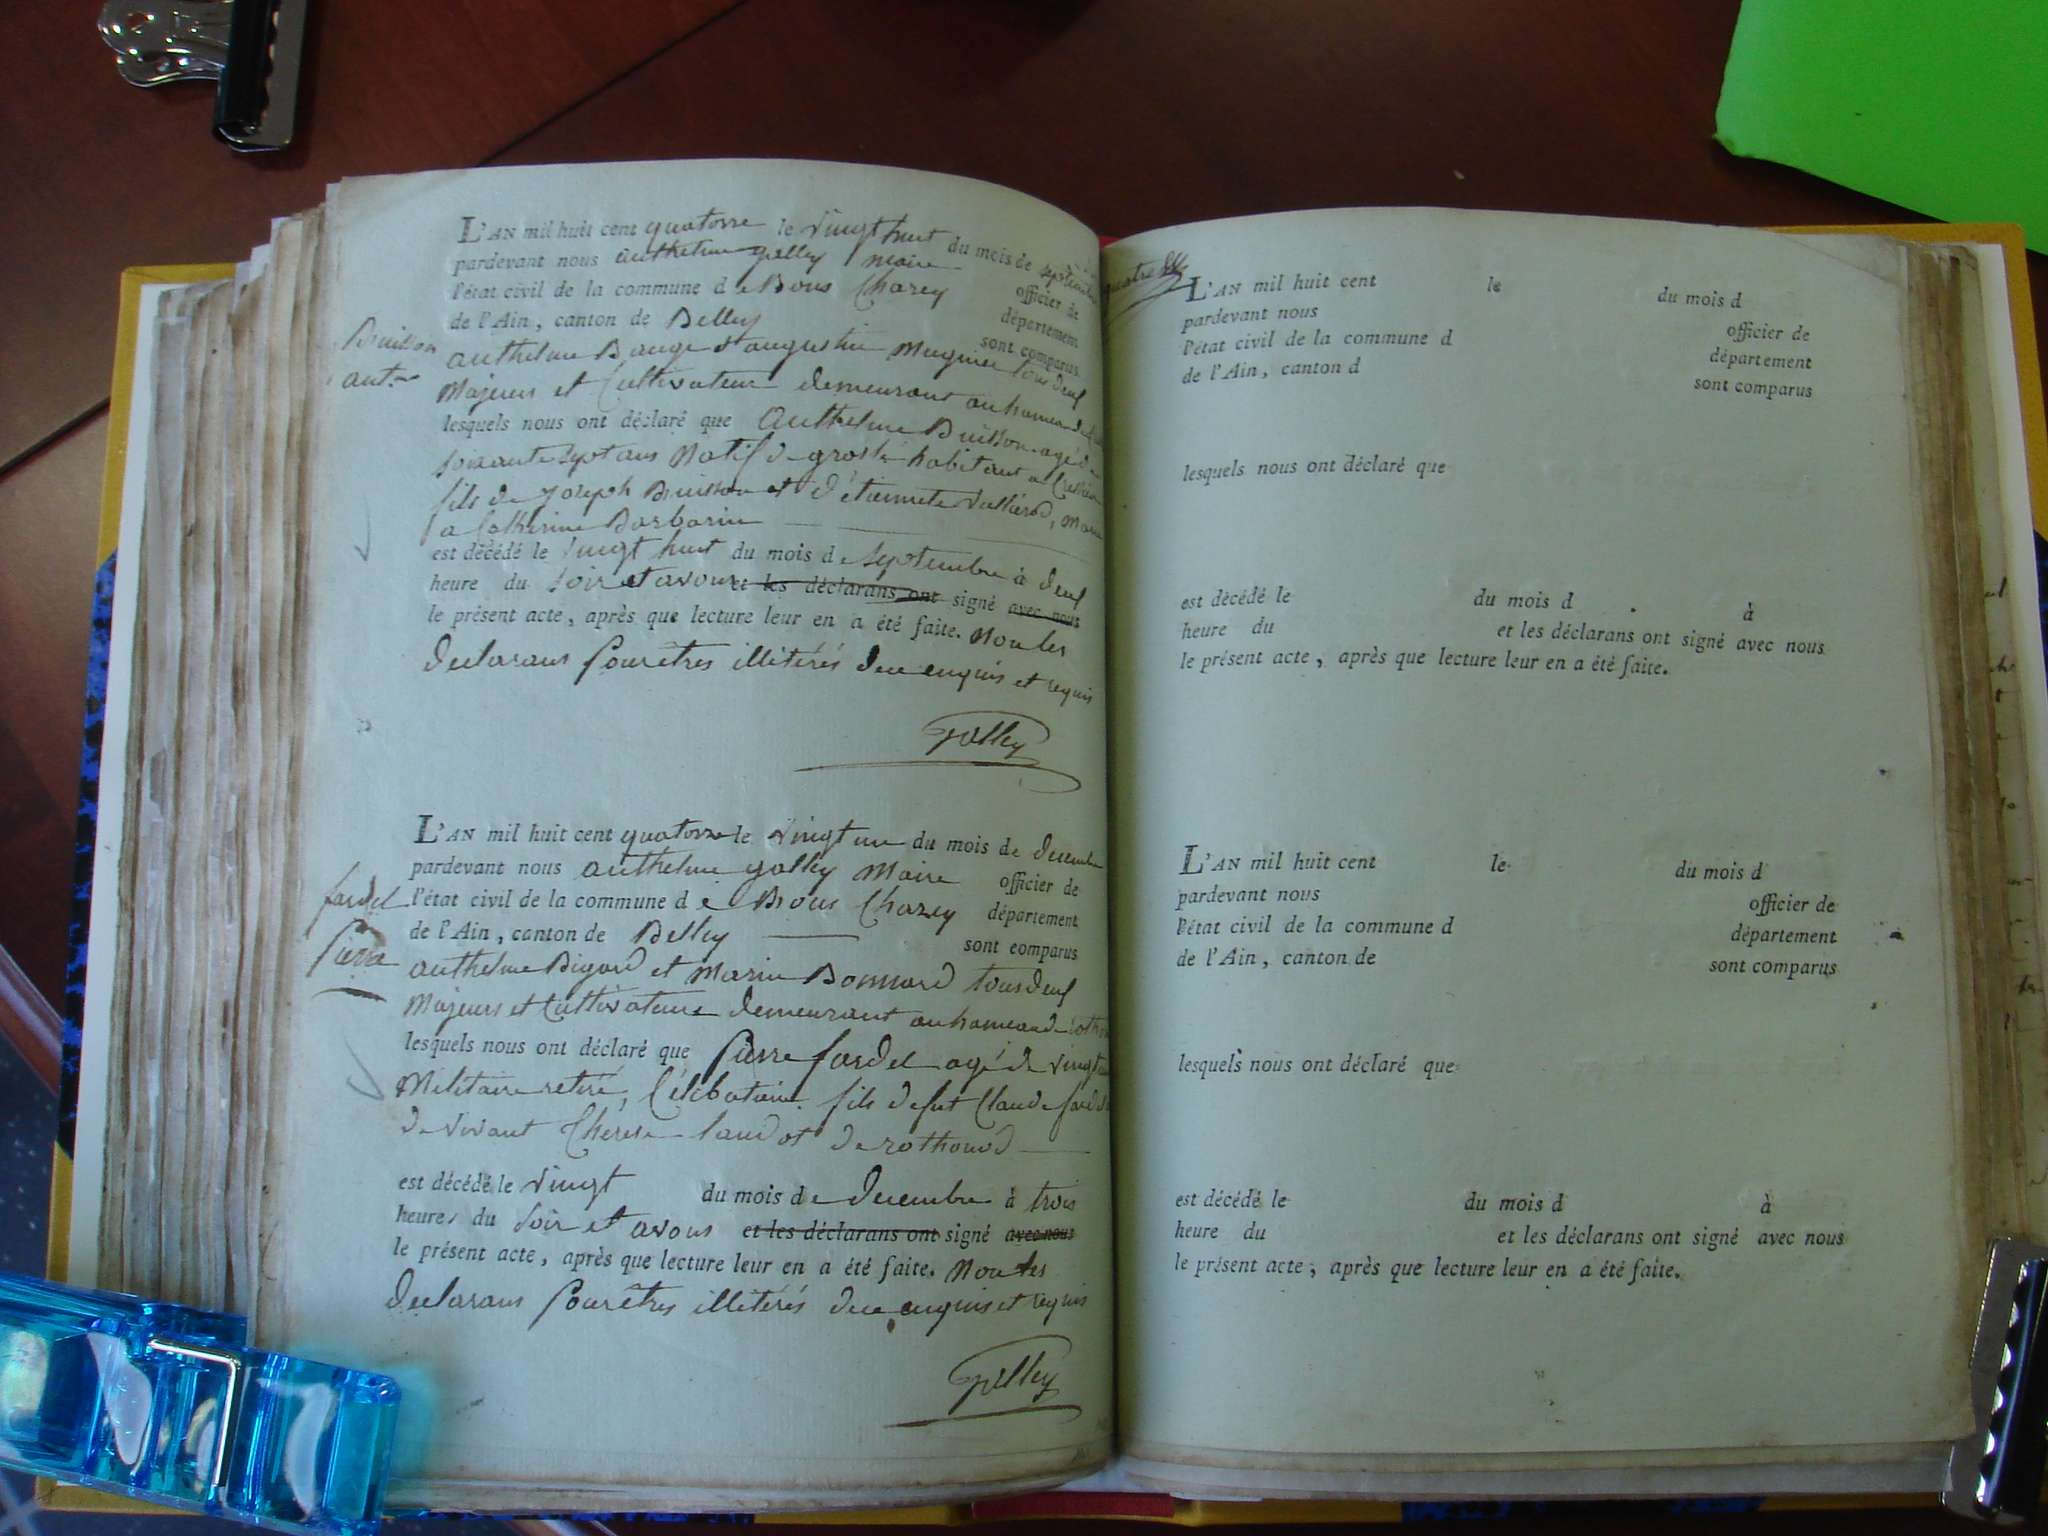 L'AN mil huit cent quatorze le vingt huit du mois de septembre
pardevant nous anthelme golley maire officier de
l'état civil de la commune d e Bons Chazey département
de l'Ain, canton de Belley sont comparus
Buisson
ant.
anthelme Bauge et augustin Mugnier tous deux
Majeurs et Cultivateur demeurant au hameau de
lesquels nous ont déclaré que Anthelme Buisson agé de
soixante sept ans Natif de groslé habitant a
fils de joseph Buisson et d'étiennete Vallierod, Marié
a Catherine Barbarin
est décédé le vingt huit du mois d e septembre à deux
heure du soir et avons et les déclarans ont signé avec nous
le présent acte, après que lecture leur en a été faite. Non les
declarans pour êtres illitérés de ce enquis et requis
golley
L'AN mil huit cent quatorze le vingt un du mois de decembre
pardevant nous anthelme golley Maire officier de
fardel
l'état civil de la commune d e Bons Chazey département
de l'Ain, canton de Belley sont comparus
Pierre
anthelme Bigord et Marin Bonnard tous deux
Majeurs et Cultivateurs demeurant au hameau de
lesquels nous ont déclaré que Pierre fardel agé de vingt
Militaire retiré, Célibataire fils de fut Claude fardel
de vivant Therese laudot de rothonod
est décédé le vingt du mois d e decembre à trois
heures du soir et avons et les déclarans ont signé avec nous
le présent acte, après que lecture leur en a été faite. Non les
declarans pour êtres illitérés de ce enquis et requis
golley
quatre
L'AN mil huit cent le du mois d
pardevant nous officier de
l'état civil de la commune d département
de l'Ain, canton d sont comparus
lesquels nous ont déclaré que
est décédé le du mois d à
heure du et les déclarans ont signé avec nous
le présent acte, après que lecture leur en a été faite.
L'AN mil huit cent le du mois d
pardevant nous officier de
l'état civil de la commune d département
de l'Ain, canton de sont comparus
lesquels nous ont déclaré que
est décédé le du mois d à
heure du et les déclarans ont signé avec nous
le présent acte, après que lecture leur en a été faite.